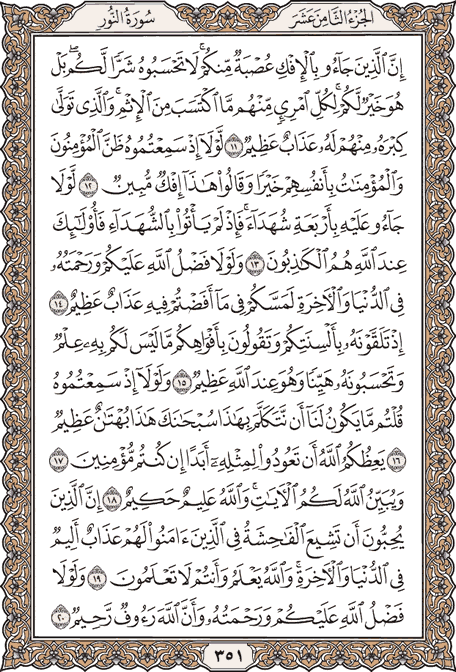 الجزء الثامن عشر
سورة النور
إِنَّ ٱلَّذِينَ جَآءُو بِٱلْإِفْكِ عُصْبَةٌ مِّنكُمْ ۚ لَا تَحْسَبُوهُ شَرًّا لَّكُم ۖ بَلْ
هُوَ خَيْرٌ لَّكُمْ ۚ لِكُلِّ ٱمْرِئٍ مِّنْهُم مَّا ٱكْتَسَبَ مِنَ ٱلْإِثْمِ ۚ وَٱلَّذِى تَوَلَّىٰ
كِبْرَهُۥ مِنْهُمْ لَهُۥ عَذَابٌ عَظِيمٌ ١١ لَّوْلَآ إِذْ سَمِعْتُمُوهُ ظَنَّ ٱلْمُؤْمِنُونَ
وَٱلْمُؤْمِنَٰتُ بِأَنفُسِهِمْ خَيْرًا وَقَالُوا۟ هَٰذَآ إِفْكٌ مُّبِينٌ ١٢ لَّوْلَا
جَآءُو عَلَيْهِ بِأَرْبَعَةِ شُهَدَآءَ ۚ فَإِذْ لَمْ يَأْتُوا۟ بِٱلشُّهَدَآءِ فَأُو۟لَٰٓئِكَ
عِندَ ٱللَّهِ هُمُ ٱلْكَٰذِبُونَ ١٣ وَلَوْلَا فَضْلُ ٱللَّهِ عَلَيْكُمْ وَرَحْمَتُهُۥ
فِى ٱلدُّنْيَا وَٱلْءَاخِرَةِ لَمَسَّكُمْ فِى مَآ أَفَضْتُمْ فِيهِ عَذَابٌ عَظِيمٌ ١٤
إِذْ تَلَقَّوْنَهُۥ بِأَلْسِنَتِكُمْ وَتَقُولُونَ بِأَفْوَاهِكُم مَّا لَيْسَ لَكُم بِهِۦ عِلْمٌ
وَتَحْسَبُونَهُۥ هَيِّنًا وَهُوَ عِندَ ٱللَّهِ عَظِيمٌ ١٥ وَلَوْلَآ إِذْ سَمِعْتُمُوهُ
قُلْتُم مَّا يَكُونُ لَنَآ أَن نَّتَكَلَّمَ بِهَٰذَا سُبْحَٰنَكَ هَٰذَا بُهْتَٰنٌ عَظِيمٌ
١٦ يَعِظُكُمُ ٱللَّهُ أَن تَعُودُوا۟ لِمِثْلِهِۦٓ أَبَدًا إِن كُنتُم مُّؤْمِنِينَ ١٧
وَيُبَيِّنُ ٱللَّهُ لَكُمُ ٱلْءَايَٰتِ ۚ وَٱللَّهُ عَلِيمٌ حَكِيمٌ ١٨ إِنَّ ٱلَّذِينَ
يُحِبُّونَ أَن تَشِيعَ ٱلْفَٰحِشَةُ فِى ٱلَّذِينَ ءَامَنُوا۟ لَهُمْ عَذَابٌ أَلِيمٌ
فِى ٱلدُّنْيَا وَٱلْءَاخِرَةِ ۚ وَٱللَّهُ يَعْلَمُ وَأَنتُمْ لَا تَعْلَمُونَ ١٩ وَلَوْلَا
فَضْلُ ٱللَّهِ عَلَيْكُمْ وَرَحْمَتُهُۥ وَأَنَّ ٱللَّهَ رَءُوفٌ رَّحِيمٌ ٢٠
٣٥١